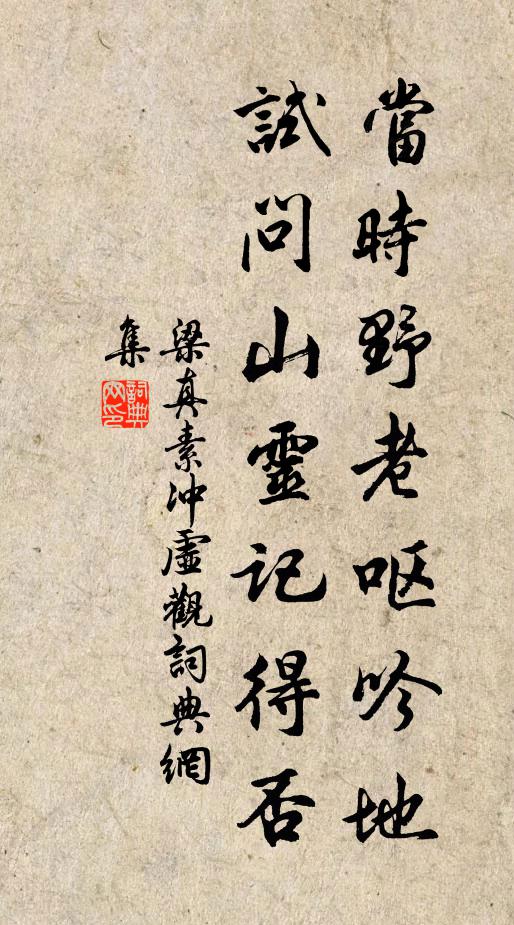 當時野老呕吟地
試問山靈記得否
梁真素冲虛觀詞典網
集
詞典
网印